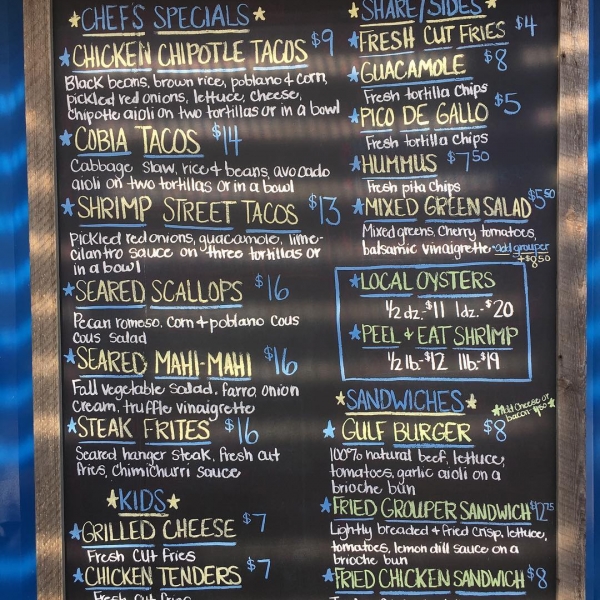 CHEF'S SPECIALS
CHICKEN CHIPOTLE TACOS $9
Black beans, brown rice, poblano & corn,
pickled red onions, lettuce, cheese,
chipotle aioli on two tortillas or in a bowl
COBIA TACOS $14
Cabbage slaw, rice & beans, avocado
aioli on two tortillas or in a bowl
SHRIMP STREET TACOS $13
Pickled red onions, guacamole, lime-
cilantro sauce on three tortillas or
in a bowl
SEARED SCALLOPS $16
Pecan romoso, corn & poblano cous
cous salad
SEARED MAHI-MAHI $16
Fall vegetable salad, farro, onion
cream, truffle vinaigrette
STEAK FRITES $16
Seared hanger steak, fresh cut
fries, chimichurri sauce
KIDS
GRILLED CHEESE $7
Fresh cut fries
CHICKEN TENDERS $7
Fresh cut fries
SHARE/SIDES
FRESH CUT FRIES $4
GUACAMOLE $8
Fresh tortilla chips
PICO DE GALLO $5
Fresh tortilla chips
HUMMUS $7.50
Fresh pita chips
MIXED GREEN SALAD $5.50
Mixed greens, cherry tomatoes,
balsamic vinaigrette • add grouper
+$8.50
LOCAL OYSTERS
1/2 dz.-$11 1dz.-$20
PEEL & EAT SHRIMP
1/2 lb.-$12 1lb.-$19
SANDWICHES
Add cheese or
bacon
GULF BURGER $8
100% natural beef, lettuce,
tomatoes, garlic aioli on a
brioche bun
FRIED GROUPER SANDWICH $12.75
Lightly breaded & fried crisp, lettuce,
tomatoes, lemon dill sauce on a
brioche bun
FRIED CHICKEN SANDWICH $8